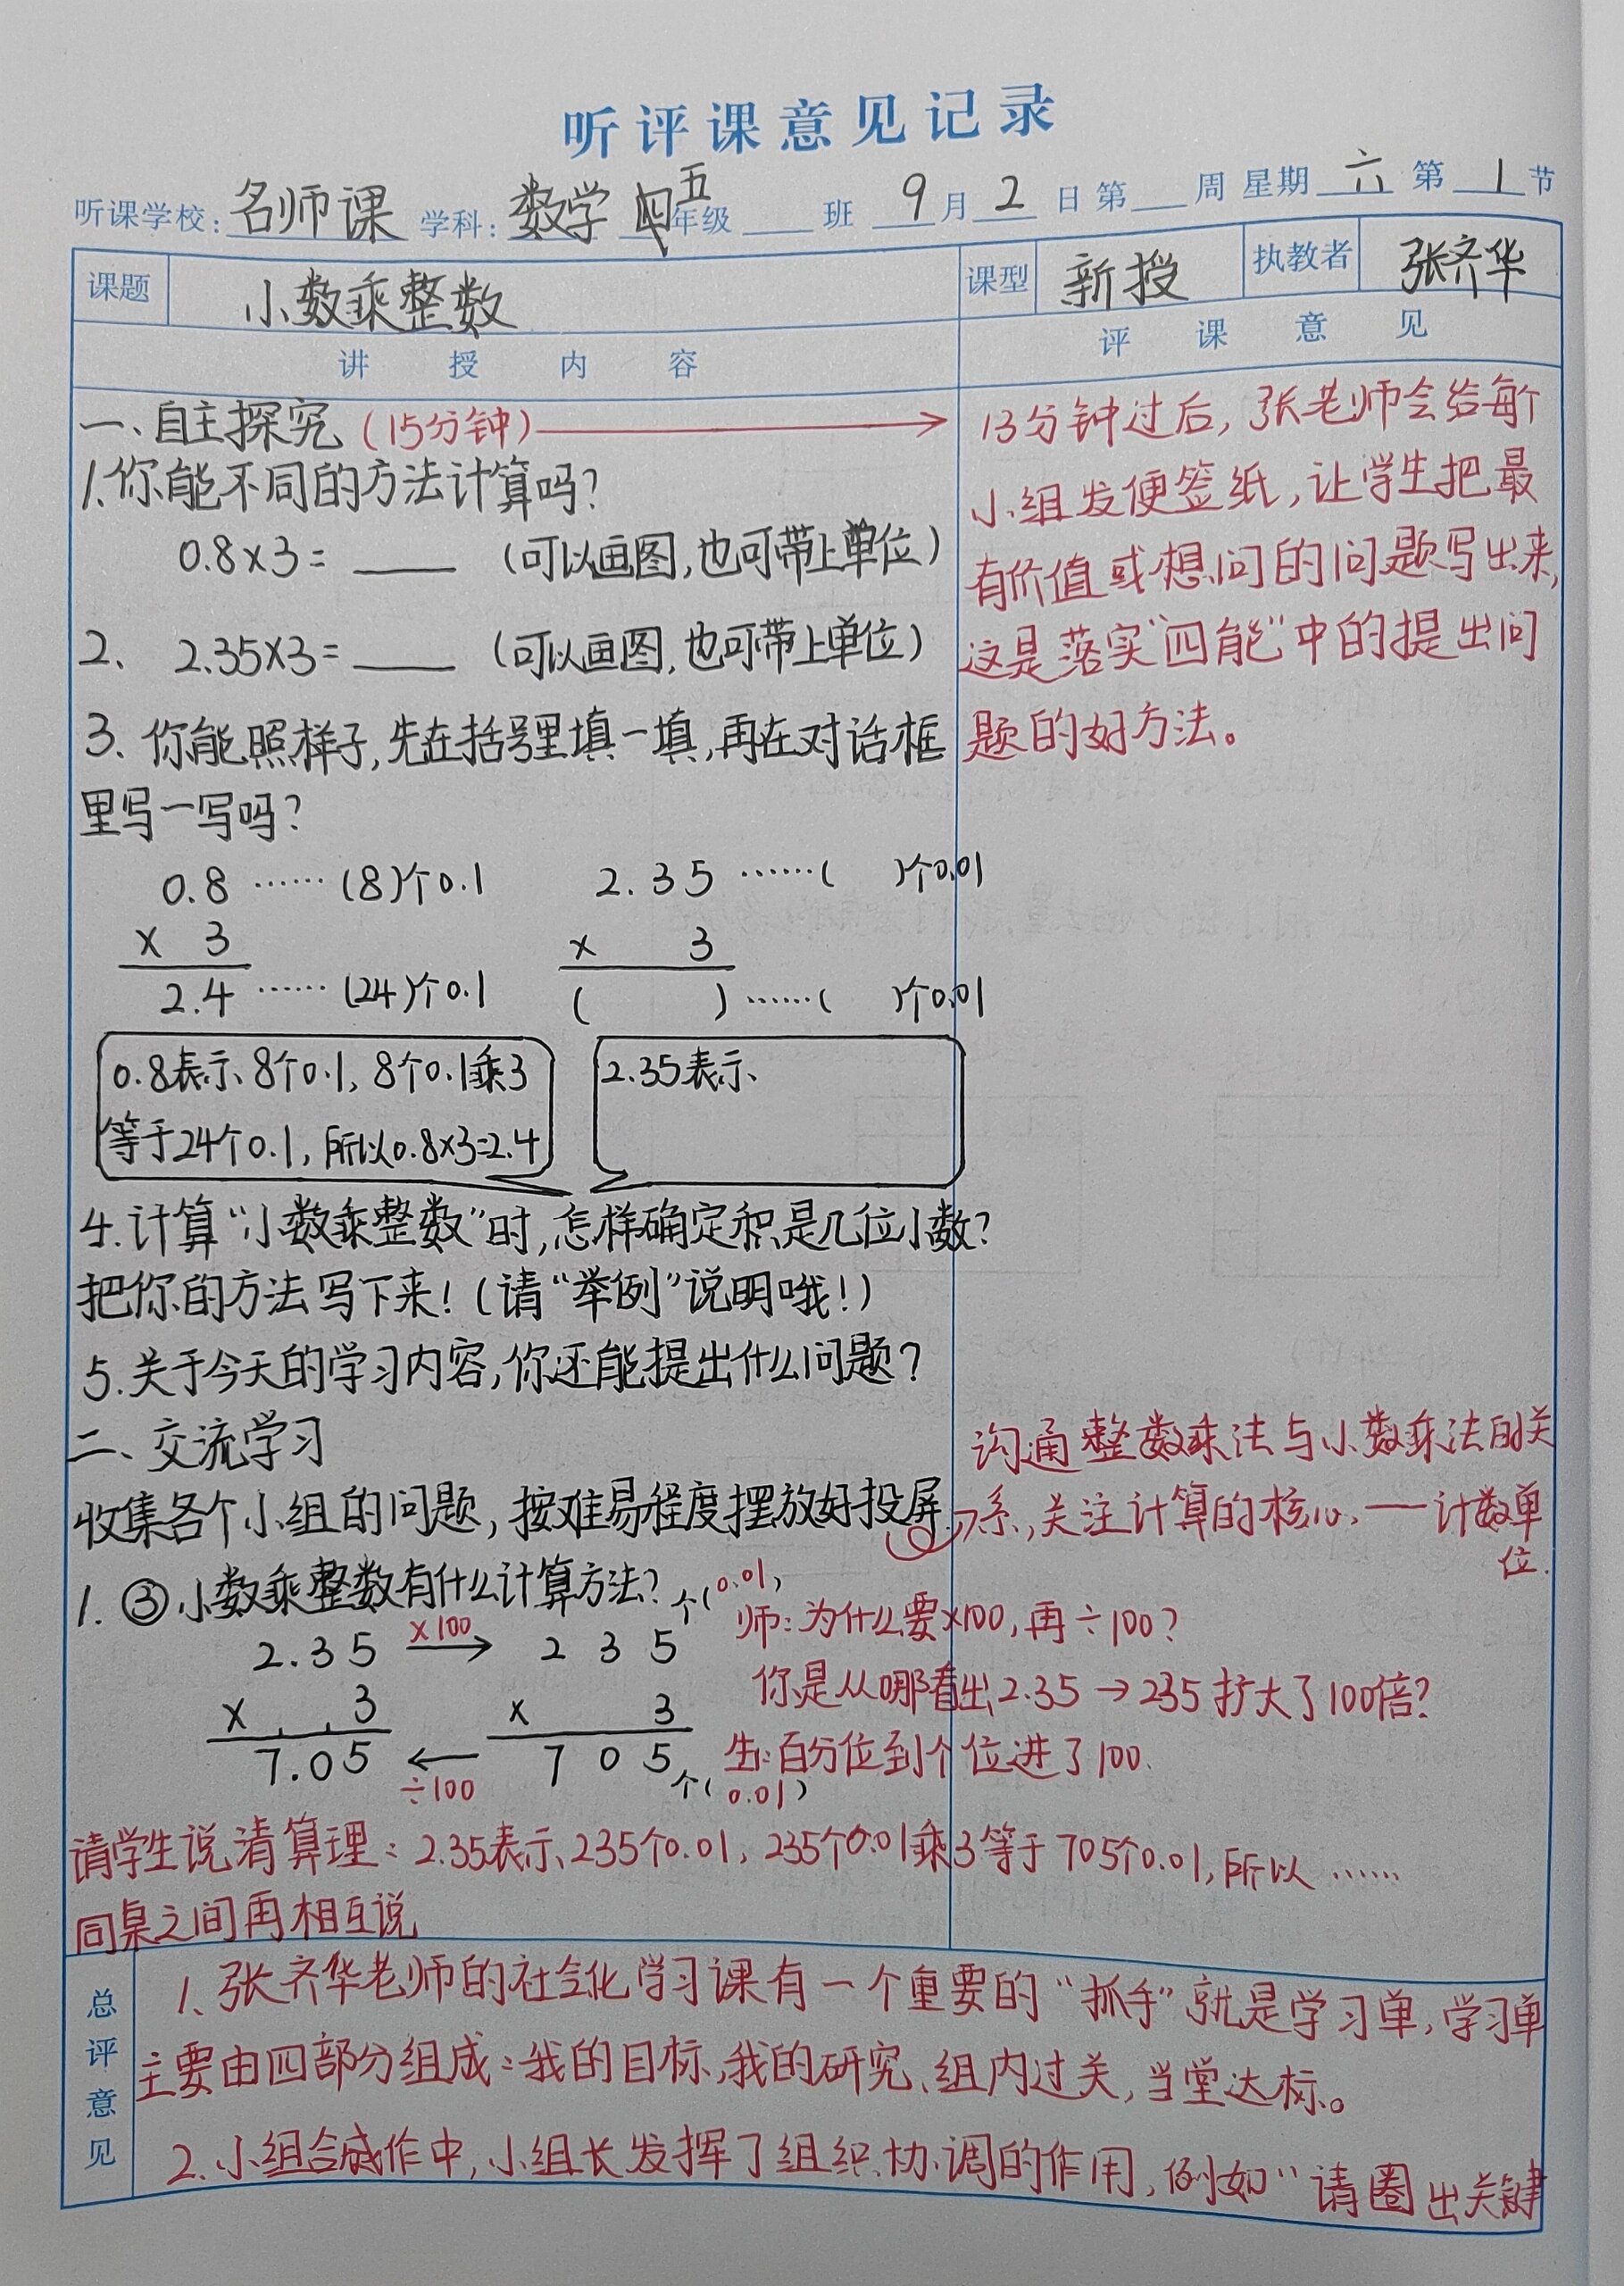 听评课意见记录
听课学校: 名师课 学科: 数学 五年级 班 9月2日 第 周 星期六 第1节
课题 小数乘整数 课型 新授 执教者 张齐华
讲授内容 评课意见
一、自主探究 (15分钟)
1.你能不同的方法计算吗?
0.8×3= (可以画图,也可带上单位)
2、 2.35×3= (可以画图,也可带上单位)
3、你能照样子,先在括号里填一填,再在对话框
里写一写吗?
0.8 ……(8)个0.1 2.35 ……( )个0.01
× 3 × 3
2.4 ……(24)个0.1 ( )……( )个0.01
0.8表示8个0.1, 8个0.1乘3
等于24个0.1, 所以0.8×3=2.4
2.35表示
4.计算“小数乘整数”时,怎样确定积是几位小数?
把你的方法写下来!(请“举例”说明哦!)
5.关于今天的学习内容,你还能提出什么问题?
二、交流学习
收集各个小组的问题,按难易程度摆放好投屏
1. ③小数乘整数有什么计算方法?
2.35 ×100→ 235 个(0.01)
× 3 × 3
7.05 ←÷100 705 个(0.01)
13分钟过后,张老师会给每个
小组发便签纸,让学生把最
有价值或想问的问题写出来,
这是落实“四能”中的提出问
题的好方法。
沟通整数乘法与小数乘法的关
系,关注计算的核心——计数单
位.
师:为什么要×100,再÷100?
你是从哪看出2.35→235扩大了100倍?
生:百分位到个位进了100.
请学生说清算理:2.35表示235个0.01, 235个0.01乘3等于705个0.01,所以……
同桌之间再相互说
总评意见
1、张齐华老师的社会化学习课有一个重要的“抓手”就是学习单,学习单
主要由四部分组成:我的目标,我的研究、组内过关,当堂达标。
2、小组合作中,小组长发挥了组织协调的作用,例如“请圈出关键